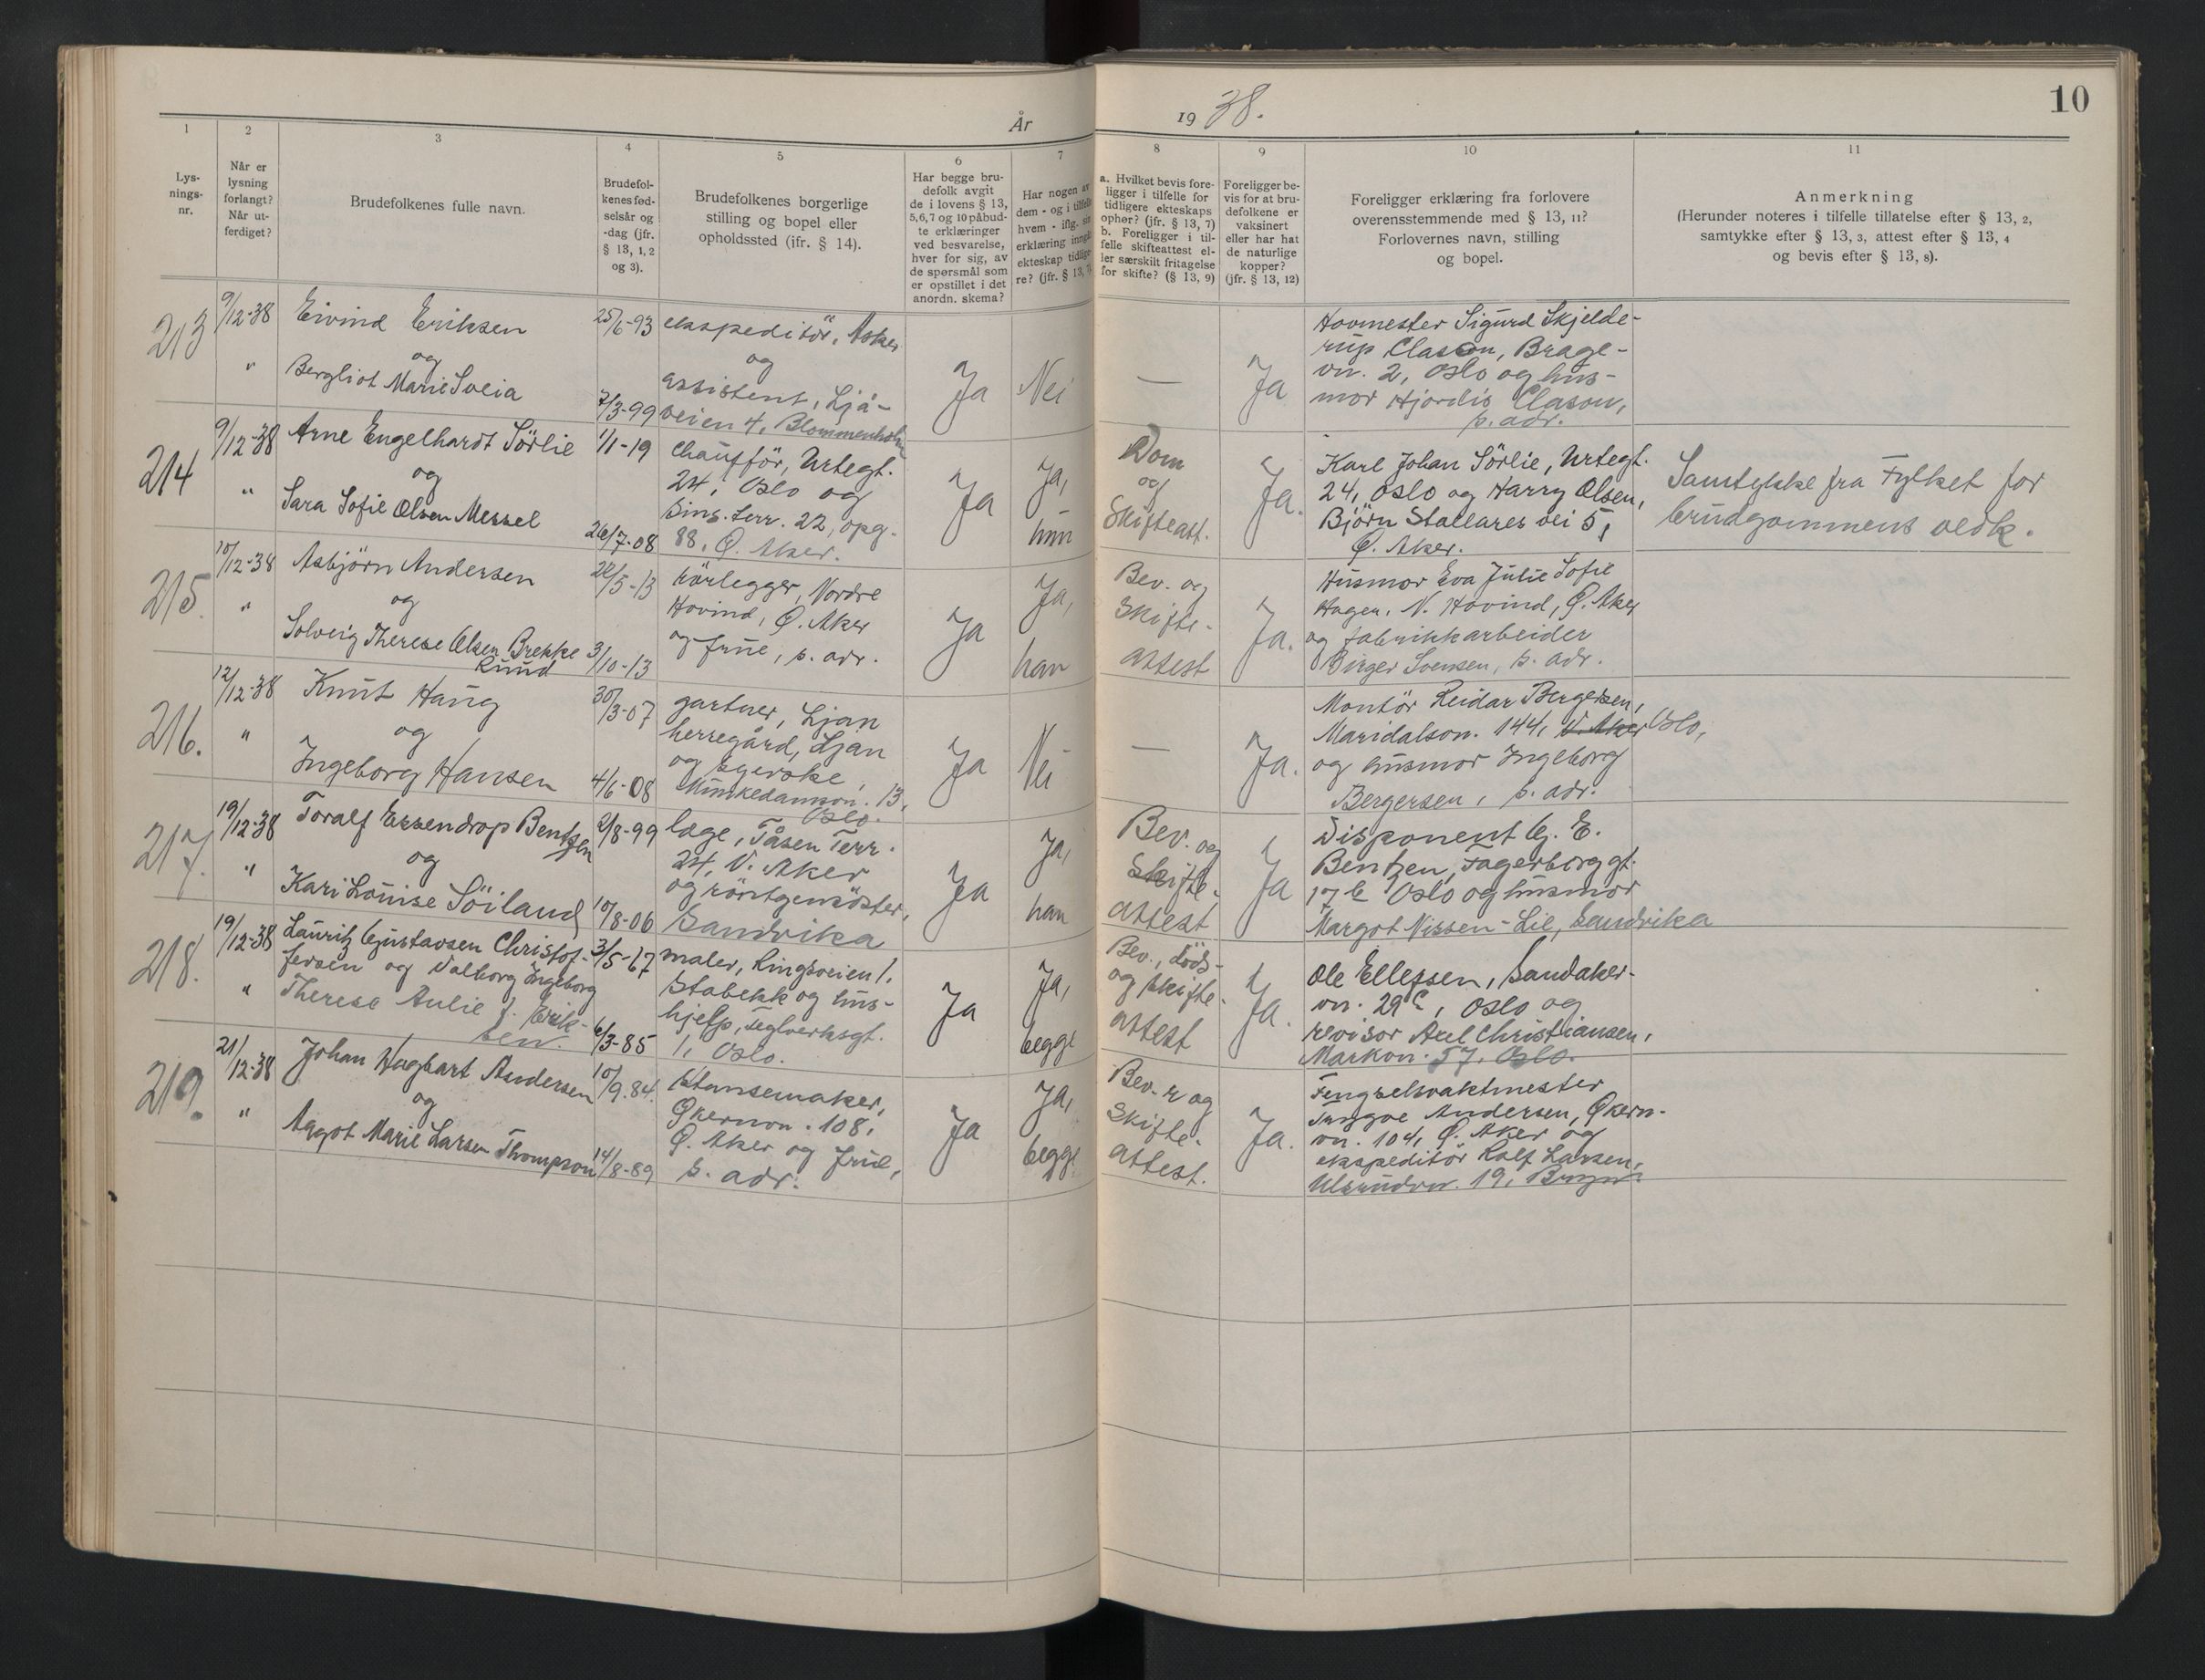 10
År
19 38.
1
2
3
4
5
6
7
8
9
10
11
Lys-
nings-
nr.
Når er
lysning
forlangt?
Når ut-
ferdiget?
Brudefolkenes fulle navn.
Brudefol-
kenes fød-
selsår og
-dag (jfr.
§ 13, 1, 2
og 3).
Brudefolkenes borgerlige
stilling og bopel eller
opholdssted (ifr. § 14).
Har begge bru-
defolk avgit
de i lovens § 13,
5, 6, 7 og 10 påbud-
te erklæringer
ved besvarelse,
hver for sig, av
de spørsmål som
er opstillet i det
anordn. skema?
Har nogen av
dem - og i tilfelle
hvem - iflg. sin
erklæring inngått
ekteskap tidlige-
re? (jfr. § 13, 7)
a. Hvilket bevis fore-
ligger i tilfelle for
tidligere ekteskaps
ophør? (jfr. § 13, 7)
b. Foreligger i til-
felle skifteattest el-
ler særskilt fritagelse
for skifte? (§ 13, 9)
Foreligger be-
vis for at bru-
defolkene er
vaksinert
eller har hat
de naturlige
kopper?
(jfr. § 13, 12)
Foreligger erklæring fra forlovere
overensstemmende med § 13, 11?
Forlovernes navn, stilling
og bopel.
Anmerkning
(Herunder noteres i tilfelle tillatelse efter § 13, 2,
samtykke efter § 13, 3, attest efter § 13, 4
og bevis efter § 13, 8).
213
9/12-38
"
Eivind Eriksen
og
Bergliot Marie Sveia
25/6-93
7/3-99
ekspeditör, Asker
og
assistent, Ljå-
veien 4, Blommenholm
Ja
Nei
—
Ja
Hovmester Sigurd Skjelde-
rup Clason, Brage-
vn. 2, Oslo og hus-
mor Hjördis Clason,
s. adr.
214
9/12-38
"
Arne Engelhardt Sörlie
og
Sara Sofie Olsen Messel
1/1-19
26/7-08
Chaufför, Urtegt.
24, Oslo og
Sins. terr. 22, opg.
88, Ø. Aker.
Ja
Ja,
hun
Dom
og
Skifteatt.
Ja.
Karl Johan Sörlie, Urtegt.
24, Oslo og Harry Olsen,
Björn Stallares vei 5,
Ø. Aker.
Samtykke fra Fylket for
brudgommens vedk.
215.
10/12-38
"
Asbjörn Andersen
og
Solveig Therese Olsen Brekke
Ruud
28/5-13
3/10-13
rörlegger, Nordre
Hovind, Ø. Aker
og frue, s. adr.
Ja
Ja,
han
Bev. og
Skifte-
attest
Ja.
Husmor Eva Julie Sofie
Hagen, N. Hovind, Ø. Aker
og fabrikkarbeider
Birger Svensen, s. adr.
216.
12/12-38
"
Knut Haug
og
Ingeborg Hansen
30/3-07
4/6-08
gartner, Ljan
herregård, Ljan
og syerske,
Munkedamsvn. 13,
Oslo.
Ja
Nei
—
Ja.
Montör Reidar Bergersen,
Maridalsvn. 144, V. Aker Oslo,
og husmor Ingeborg
Bergersen, s. adr.
217.
19/12-38
"
Toralf Essendrop Bentzen
og
Kari Louise Söiland
2/8-99
10/8-06
læge, Tåsen Terr.
24, V. Aker
og röntgensöster,
Sandvika
Ja
Ja,
han
Bev. og
Skifte-
attest
Ja
Disponent G. E.
Bentzen, Fagerborggt.
17 b Oslo og husmor
Margot Nissen-Lie, Sandvika
218.
19/12-38
"
Lauritz Gustavsen Christof-
fersen og Valborg Ingeborg
Therese Aulie f. Erik-
sen.
3/5-67
6/3-85
maler, Ringsveien 1,
Stabekk og hus-
hjelp, Teglverksgt.
1, Oslo.
Ja
Ja,
begge
Bev., döds-
og skifte-
attest
Ja.
Ole Ellefsen, Sandaker-
vn. 29 C, Oslo og
revisor Axel Christiansen,
Markvn. 57, Oslo.
219.
21/12-38
"
Johan Hagbart Andersen
og
Aagot Marie Larsen Thompson
10/9.84.
14/8-89
Stansemaker,
Økernvn. 108,
Ø. Aker og frue,
s. adr.
Ja
Ja,
begge
Bev.-r og
Skifte-
attest.
Ja.
Fengselsvaktmester
Yngve Andersen, Økern-
vn. 104, Ø. Aker og
ekspeditör Rolf Larsen,
Ulsrudvn. 19, Bryn.